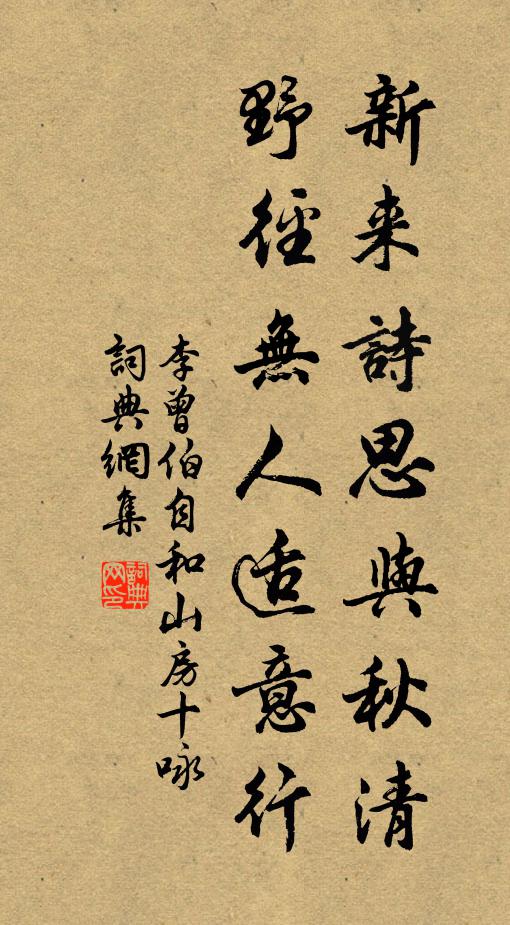 新来詩思與秋清
野徑無人适意行
李曾伯自和山房十咏
詞典網集
詞典網印